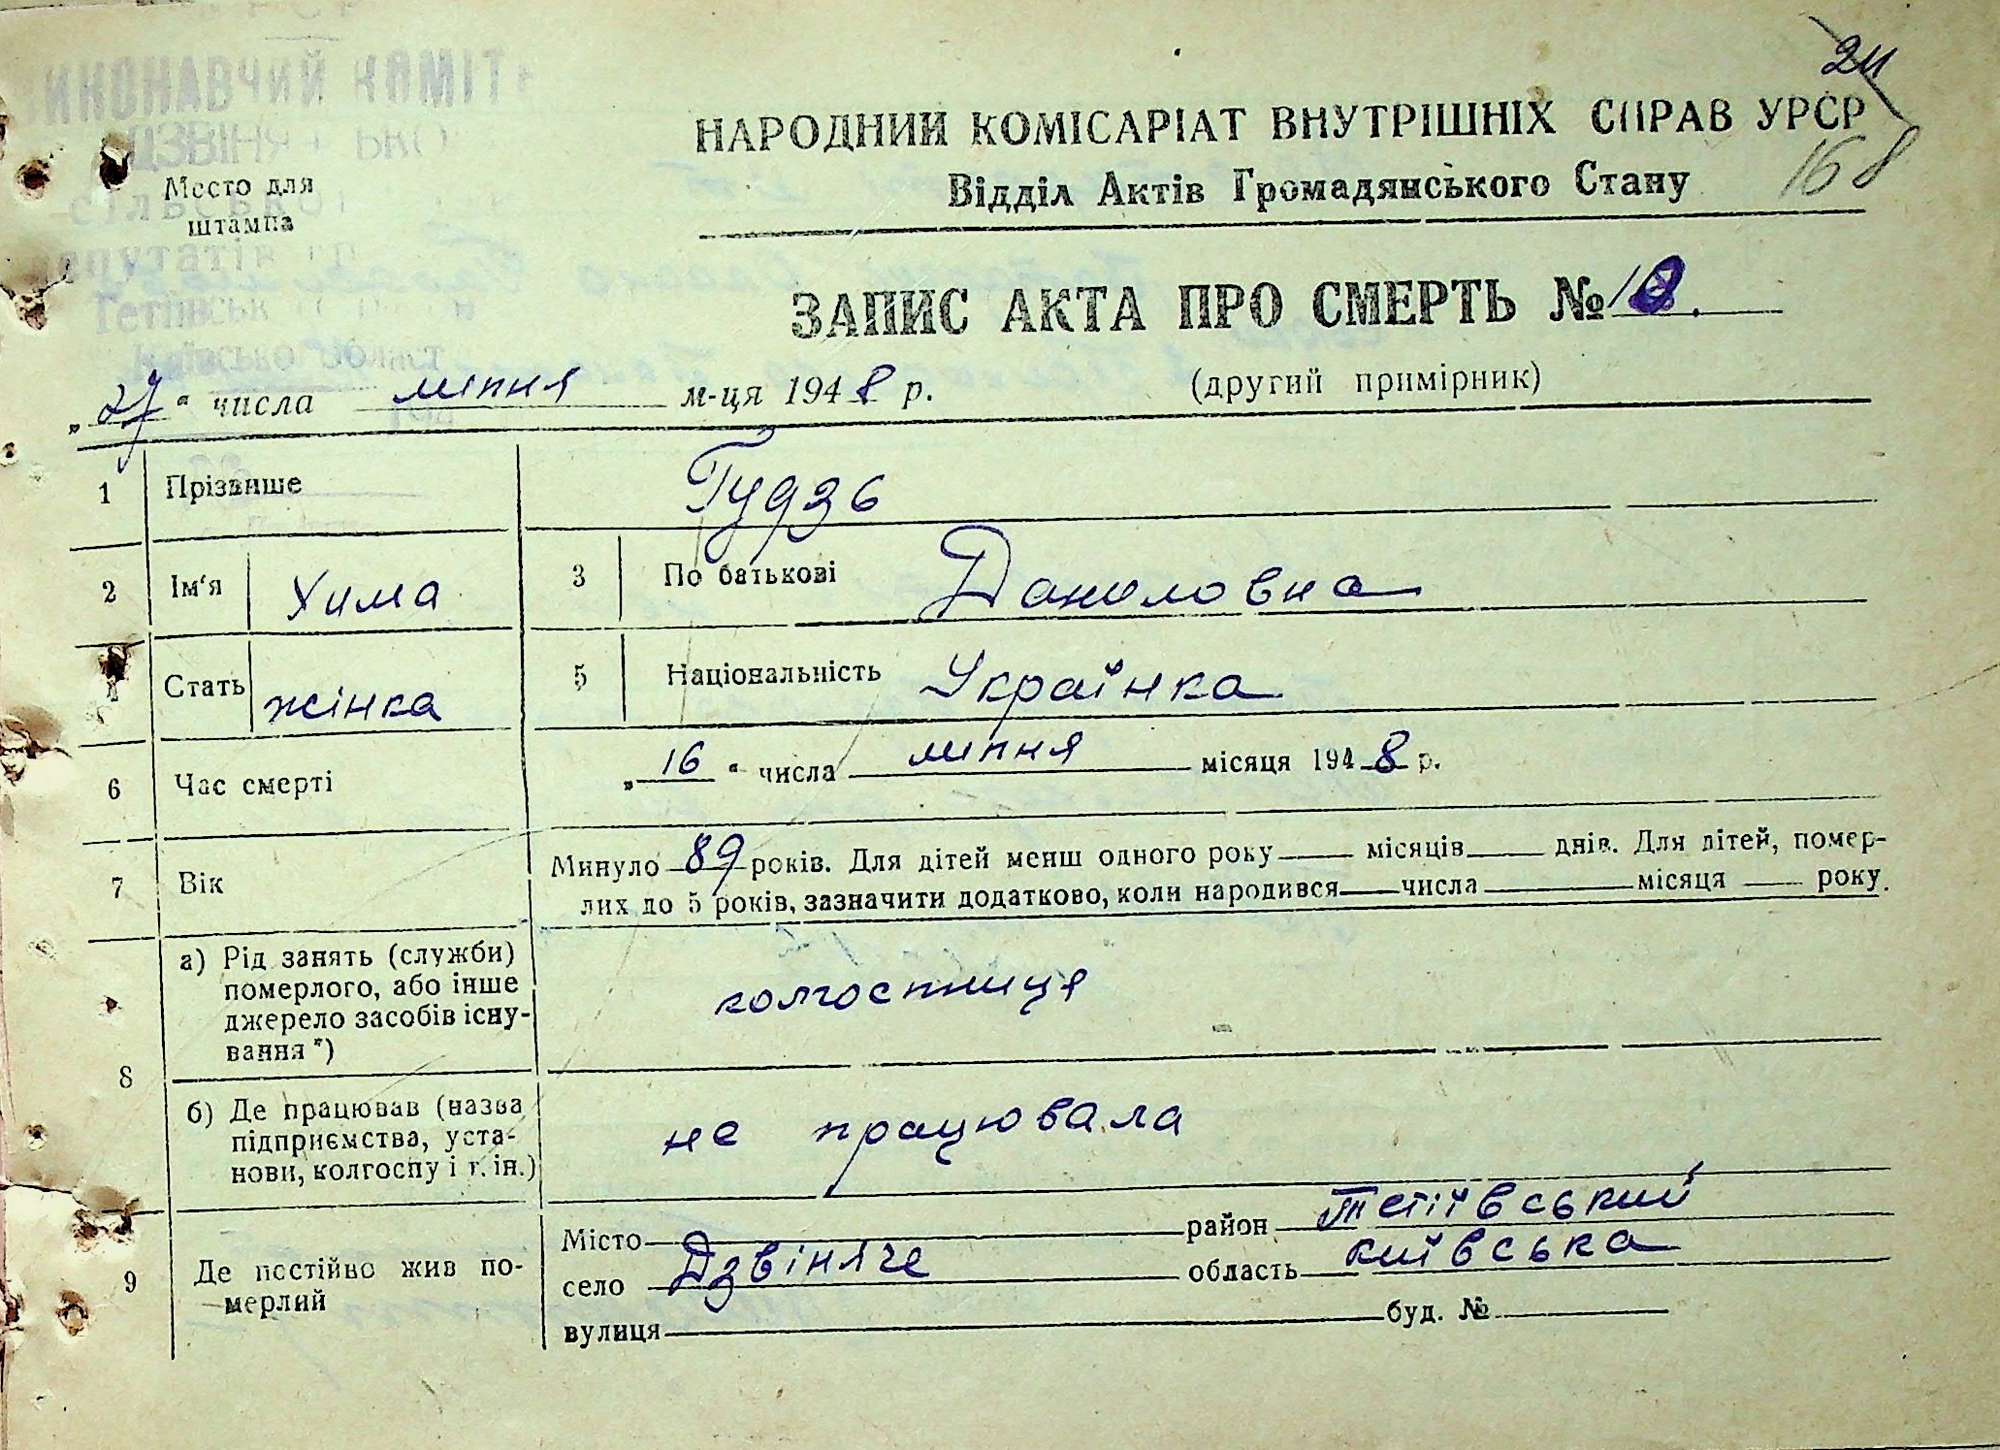 ВИКОНАВЧИЙ КОМІТЕТ
24
168
НАРОДНИЙ КОМІСАРІАТ ВНУТРІШНІХ СПРАВ УРСР
Відділ Актів Громадянського Стану
Место для
штампа
сільської
депутатів
ЗАПИС АКТА ПРО СМЕРТЬ №
(другий примірник)
„27“ числа липня м-ця 1948 р.
1 Прізвище Гудзь
2 Ім'я Хима 3 По батькові Даниловна
4 Стать жінка 5 Національність Українка
6 Час смерті „16“ числа липня місяця 1948 р.
7 Вік Минуло 89 років. Для дітей менш одного року місяців днів. Для дітей, помер-
лих до 5 років, зазначити додатково, коли народився числа місяця року.
8 а) Рід занять (служби)
померлого, або інше
джерело засобів існу-
вання*)
колгоспниця
б) Де працював (назва
підприємства, уста-
нови, колгоспу і т. ін.)
не працювала
9 Де постійно жив по-
мерлий
Місто район Тетіївський
село Дзвіняче область київська
вулиця буд. №